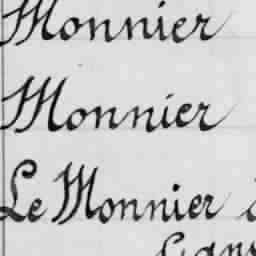 Monnier
Monnier
Le Monnier